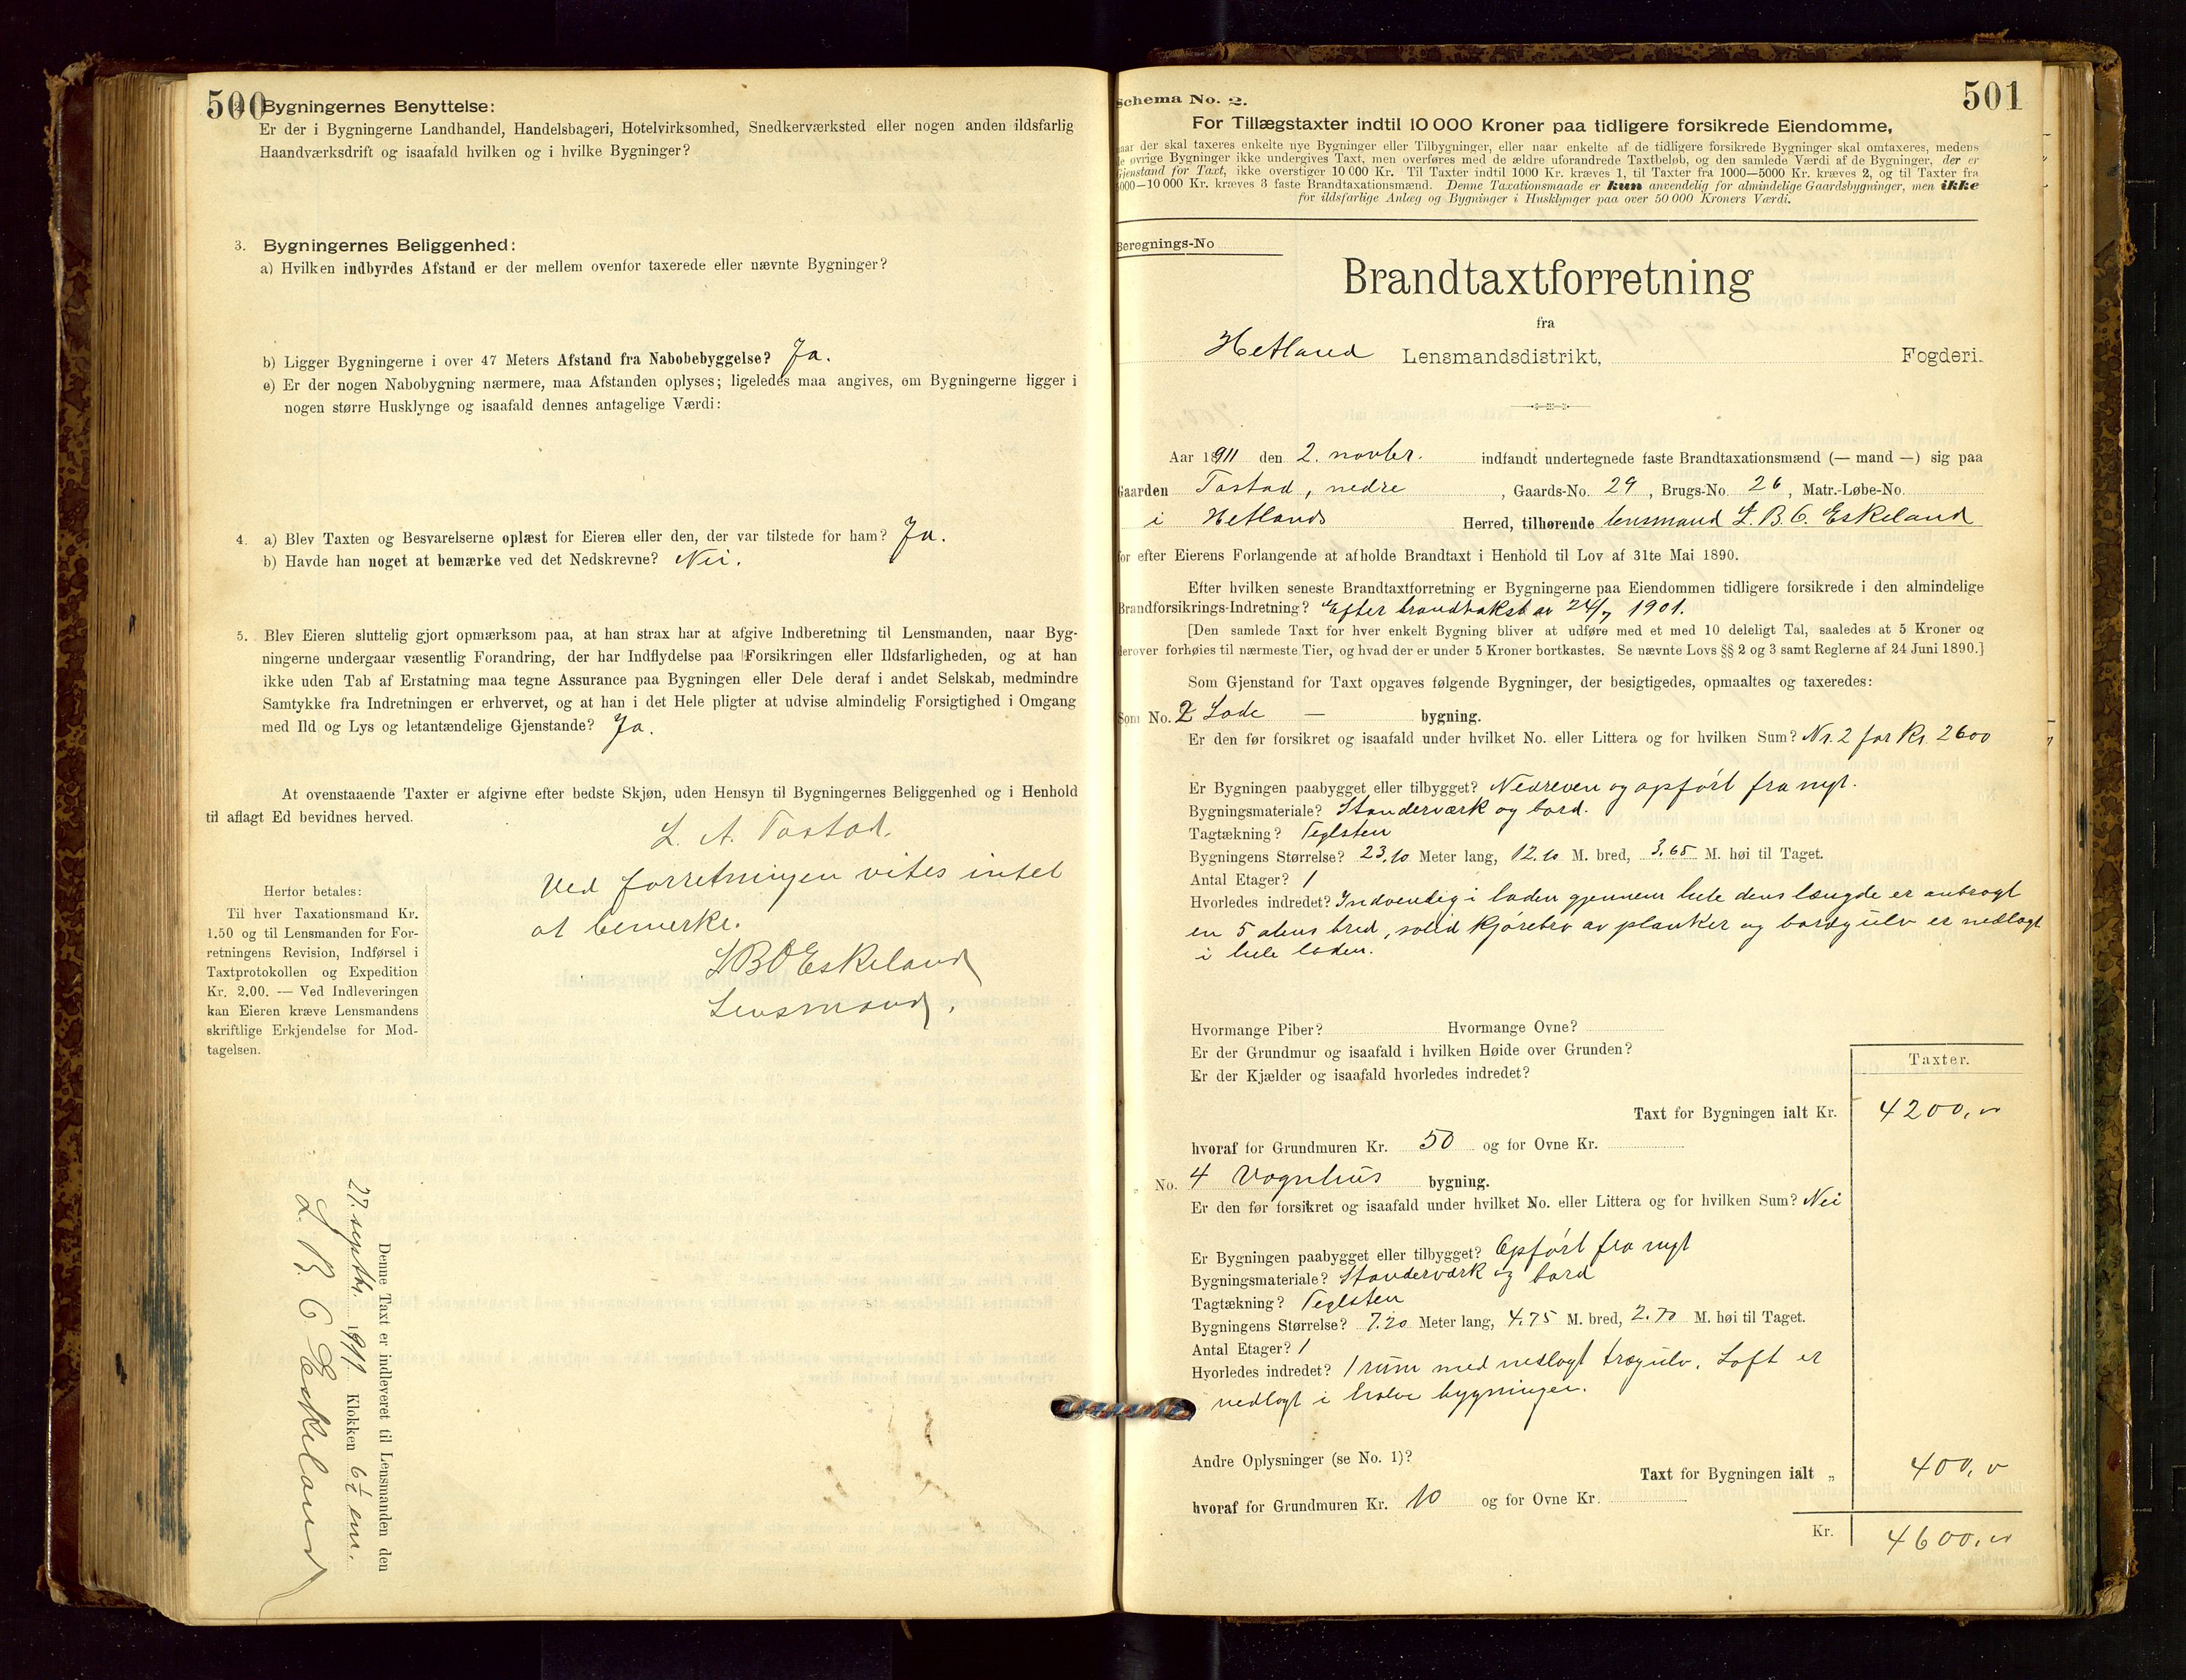 500
2. Bygningernes Benyttelse:
Er der i Bygningerne Landhandel, Handelsbageri, Hotelvirksomhed, Snedkerværksted eller nogen anden ildsfarlig
Haandværksdrift og isaafald hvilken og i hvilke Bygninger?
3. Bygningernes Beliggenhed:
a) Hvilken indbyrdes Afstand er der mellem ovenfor taxerede eller nævnte Bygninger?
b) Ligger Bygningerne i over 47 Meters Afstand fra Nabobebyggelse? Ja.
c) Er der nogen Nabobygning nærmere, maa Afstanden oplyses; ligeledes maa angives, om Bygningerne ligger i
nogen større Husklynge og isaafald dennes antagelige Værdi:
4. a) Blev Taxten og Besvarelserne oplæst for Eieren eller den, der var tilstede for ham? Ja.
b) Havde han noget at bemærke ved det Nedskrevne? Nei.
5. Blev Eieren sluttelig gjort opmærksom paa, at han strax har at afgive Indberetning til Lensmanden, naar Byg-
ningerne undergaar væsentlig Forandring, der har Indflydelse paa Forsikringen eller Ildsfarligheden, og at han
ikke uden Tab af Erstatning maa tegne Assurance paa Bygningen eller Dele deraf i andet Selskab, medmindre
Samtykke fra Indretningen er erhvervet, og at han i det Hele pligter at udvise almindelig Forsigtighed i Omgang
med Ild og Lys og letantændelige Gjenstande? Ja.
At ovenstaaende Taxter er afgivne efter bedste Skjøn, uden Hensyn til Bygningernes Beliggenhed og i Henhold
til aflagt Ed bevidnes herved.
L. A. Tastad.
Ved forretningen vites intet
at bemerke.
L B O Eskeland
Lensmand.
Herfor betales:
Til hver Taxationsmand Kr.
1.50 og til Lensmanden for For-
retningens Revision, Indførsel i
Taxtprotokollen og Expedition
Kr. 2.00. — Ved Indleveringen
kan Eieren kræve Lensmandens
skriftlige Erkjendelse for Mod-
tagelsen.
Denne Taxt er indleveret til Lensmanden den
27. septbr. 1911 Klokken 6½ em.
L. B. O Eskeland
501
Schema No. 2.
For Tillægstaxter indtil 10 000 Kroner paa tidligere forsikrede Eiendomme,
naar der skal taxeres enkelte nye Bygninger eller Tilbygninger, eller naar enkelte af de tidligere forsikrede Bygninger skal omtaxeres, medens
de øvrige Bygninger ikke undergives Taxt, men overføres med de ældre uforandrede Taxtbeløb, og den samlede Værdi af de Bygninger, der er
Gjenstand for Taxt, ikke overstiger 10 000 Kr. Til Taxter indtil 1000 Kr. kræves 1, til Taxter fra 1000—5000 Kr. kræves 2, og til Taxter fra
5000—10 000 Kr. kræves 3 faste Brandtaxationsmænd. Denne Taxationsmaade er kun anvendelig for almindelige Gaardsbygninger, men ikke
for ildsfarlige Anlæg og Bygninger i Husklynger paa over 50 000 Kroners Værdi.
Beregnings-No
Brandtaxtforretning
fra
Hetland Lensmandsdistrikt, Fogderi.
Aar 1911 den 2. novbr. indfandt undertegnede faste Brandtaxationsmænd (— mand —) sig paa
Gaarden Tastad, nedre, Gaards-No. 29, Brugs-No. 26, Matr.-Løbe-No.
i Hetlands Herred, tilhørende lensmand L. B. O. Eskeland
for efter Eierens Forlangende at afholde Brandtaxt i Henhold til Lov af 31te Mai 1890.
Efter hvilken seneste Brandtaxtforretning er Bygningerne paa Eiendommen tidligere forsikrede i den almindelige
Brandforsikrings-Indretning? Efter brandtakst av 24/7 1901.
[Den samlede Taxt for hver enkelt Bygning bliver at udføre med et med 10 deleligt Tal, saaledes at 5 Kroner og
derover forhøies til nærmeste Tier, og hvad der er under 5 Kroner bortkastes. Se nævnte Lovs §§ 2 og 3 samt Reglerne af 24 Juni 1890.]
Som Gjenstand for Taxt opgaves følgende Bygninger, der besigtigedes, opmaaltes og taxeredes:
Som No. 2 Lade — bygning.
Er den før forsikret og isaafald under hvilket No. eller Littera og for hvilken Sum? Nr. 2 for Kr. 2600
Er Bygningen paabygget eller tilbygget? Nedreven og opført fra nyt.
Bygningsmateriale? Standerværk og bord.
Tagtækning? Teglsten
Bygningens Størrelse? 23,10 Meter lang, 12.10 M. bred, 3.65 M. høi til Taget.
Antal Etager? 1
Hvorledes indredet? Indvendig i laden gjennem hele dens længde er anbragt
en 5 alens bred, solid kjørebro av planker og bordgulv er nedlagt
i hele laden.
Hvormange Piber? Hvormange Ovne?
Er der Grundmur og isaafald i hvilken Høide over Grunden?
Er der Kjælder og isaafald hvorledes indredet?
Taxter.
Taxt for Bygningen ialt Kr. 4200,"
hvoraf for Grundmuren Kr. 50 og for Ovne Kr.
No. 4 Vognhus bygning.
Er den før forsikret og isaafald under hvilket No. eller Littera og for hvilken Sum? Nei
Er Bygningen paabygget eller tilbygget? Opført fra nyt
Bygningsmateriale? Standerværk og bord
Tagtækning? Teglsten
Bygningens Størrelse? 7.20 Meter lang, 4.75 M. bred, 2.70 M. høi til Taget.
Antal Etager? 1
Hvorledes indredet? 1 rum med nedlagt trægulv. Loft er
nedlagt i halve bygningen.
Andre Oplysninger (se No. 1)?
Taxt for Bygningen ialt „ 400,"
hvoraf for Grundmuren Kr. 10 og for Ovne Kr.
Kr. 4600,"